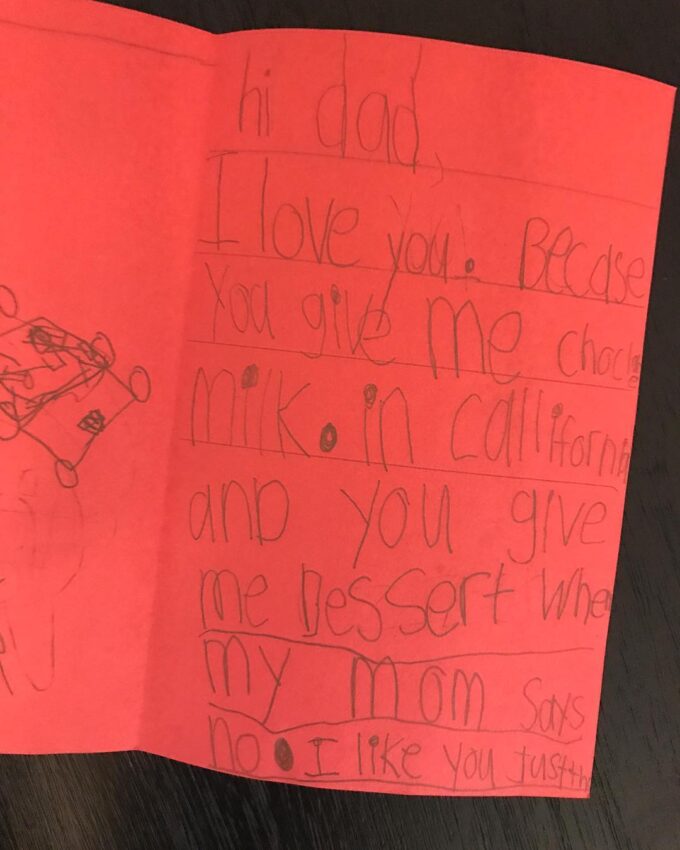 hi dad,
I love you. Becase
You give me
milk. in
and you give
me Dessert When
my mom says
no. I like you Just